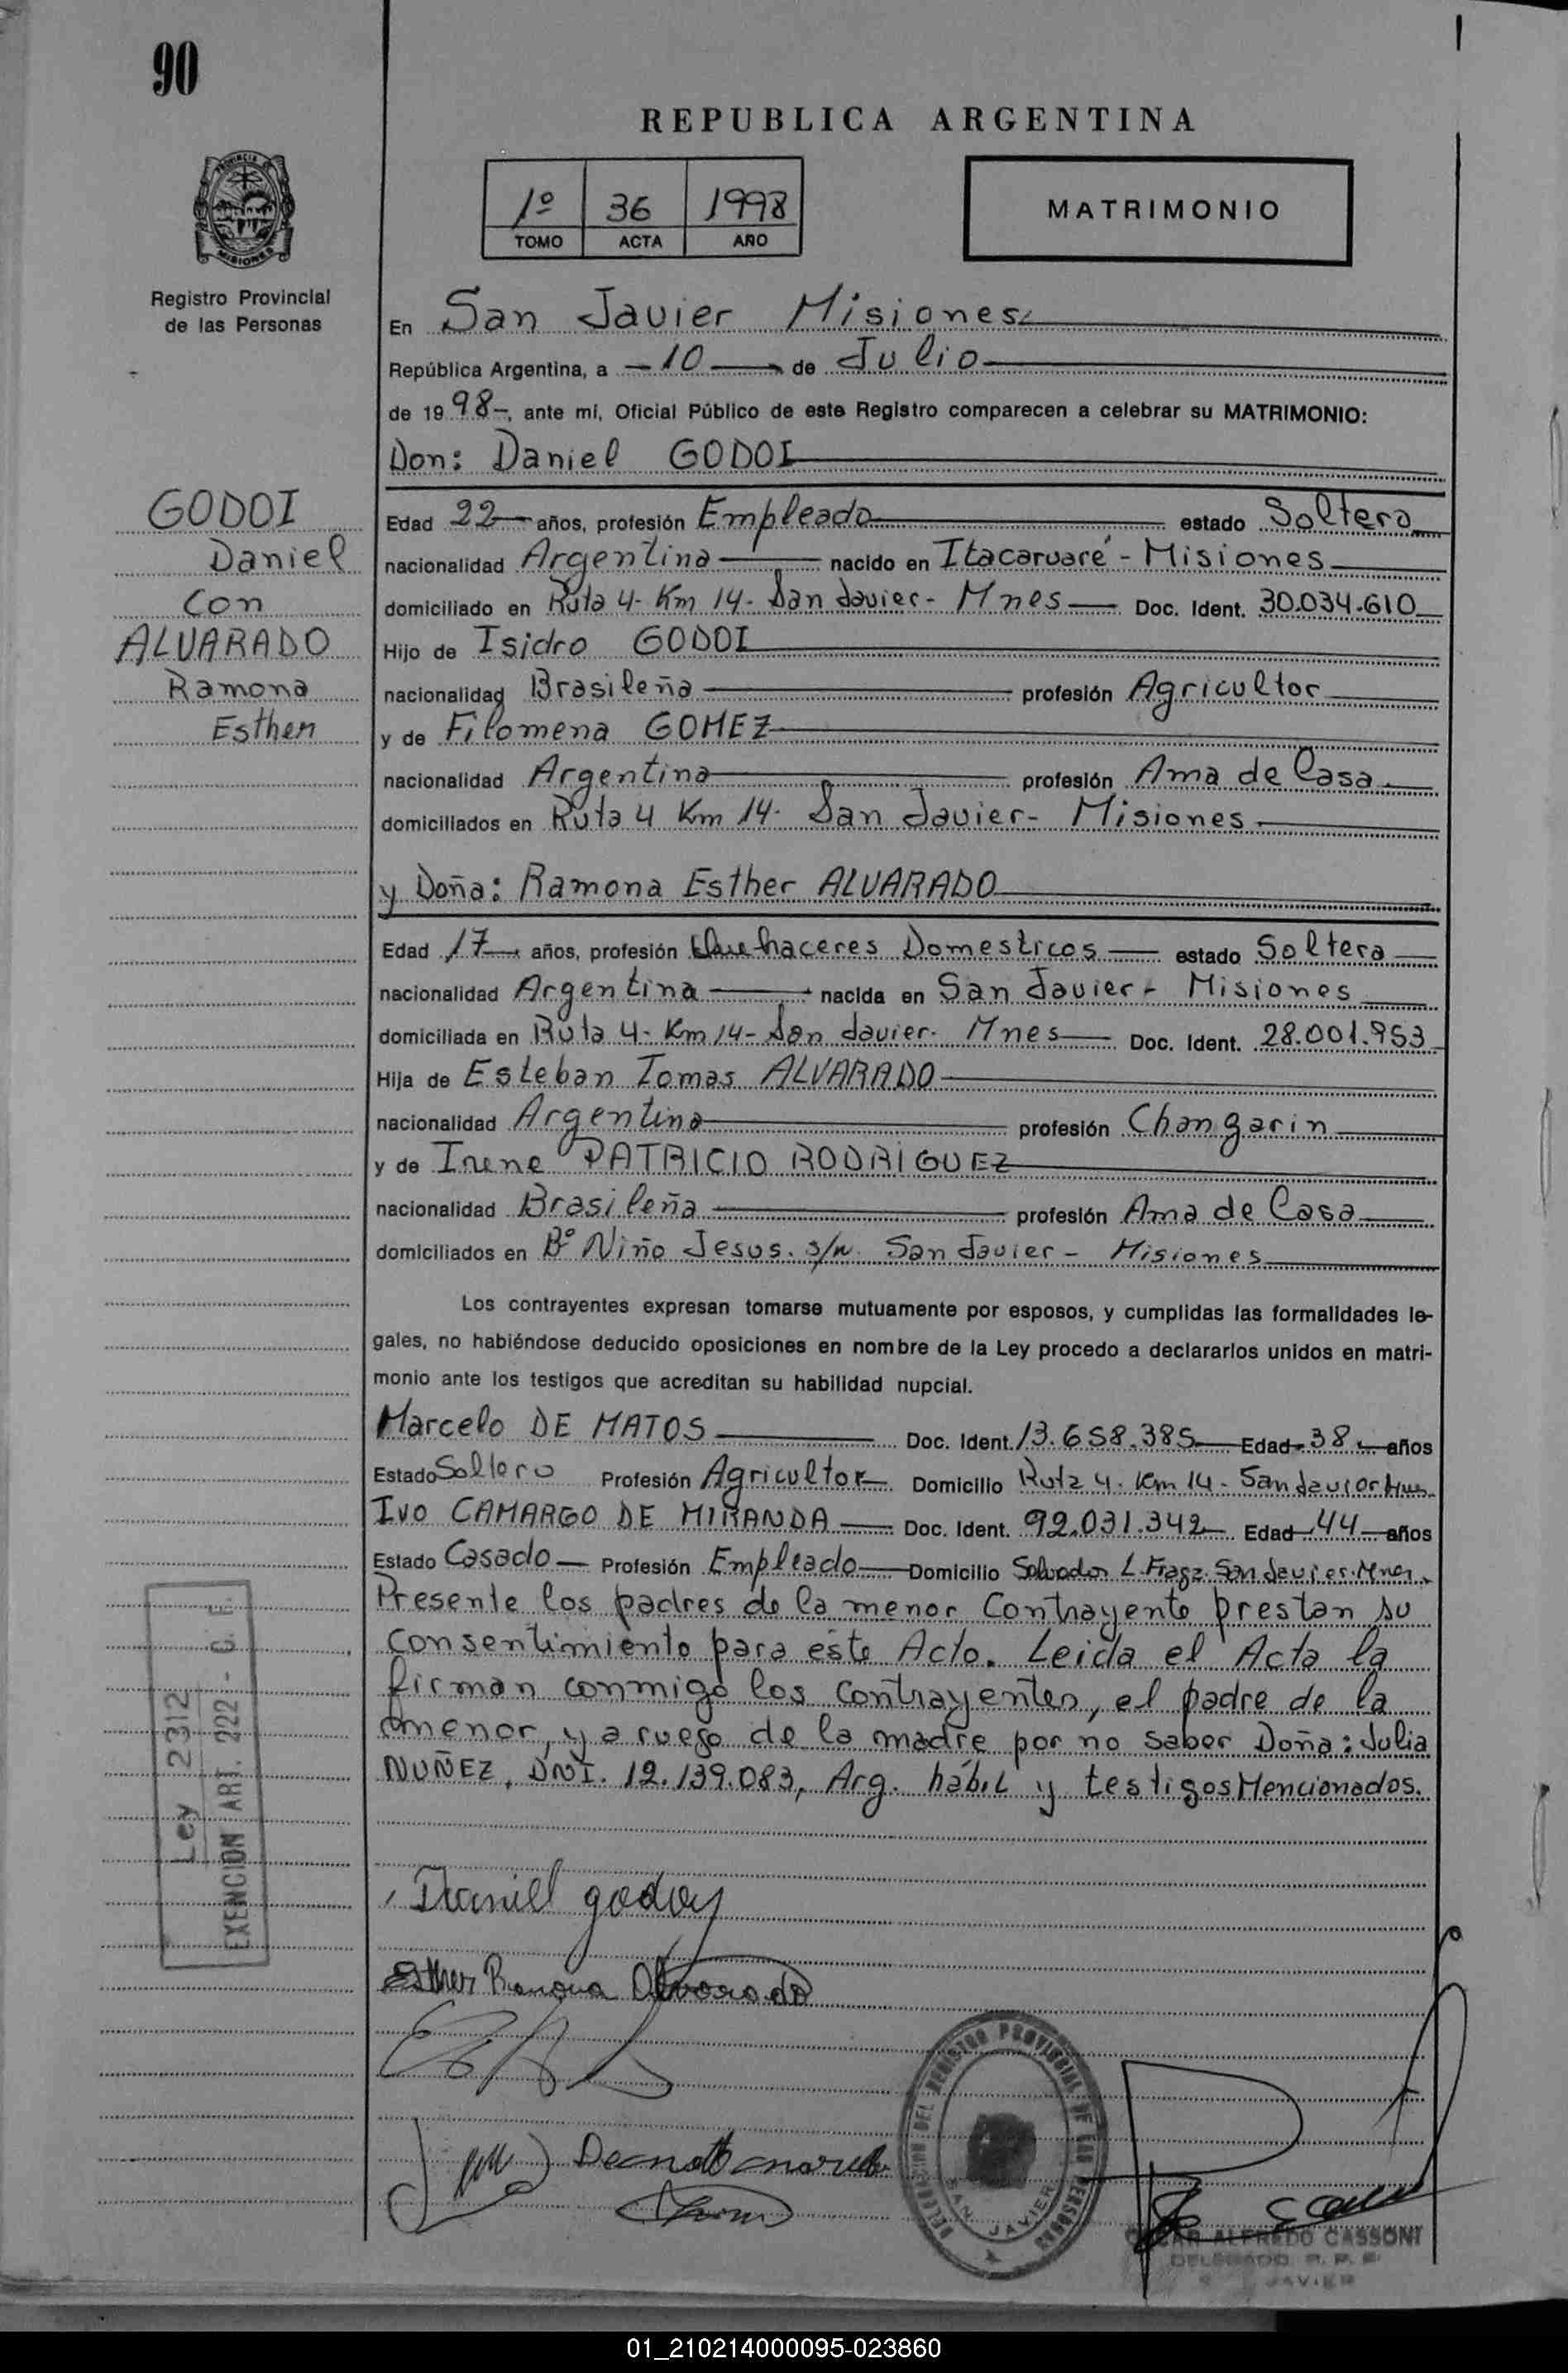 90
REPUBLICA ARGENTINA
1º 36 1998
TOMO ACTA AÑO
MATRIMONIO
PROVINCIA DE
MISIONES
Registro Provincial
de las Personas
En San Javier Misiones
República Argentina, a 10 de Julio
de 1998, ante mí, Oficial Público de este Registro comparecen a celebrar su MATRIMONIO:
Don: Daniel GODOI
GODOI
Daniel
Con
ALVARADO
Ramona
Esther
Edad 22 años, profesión Empleado estado Soltero
nacionalidad Argentina nacido en Itacaruaré - Misiones
domiciliado en Ruta 4- Km 14- San Javier- Mnes Doc. Ident. 30.034.610
Hijo de Isidro GODOI
nacionalidad Brasileña profesión Agricultor
y de Filomena GOMEZ
nacionalidad Argentina profesión Ama de Casa
domiciliados en Ruta 4 Km 14- San Javier- Misiones
y Doña: Ramona Esther ALVARADO
Edad 17 años, profesión Quehaceres Domesticos estado Soltera
nacionalidad Argentina nacida en San Javier- Misiones
domiciliada en Ruta 4- Km 14- San Javier- Mnes Doc. Ident. 28.001.953
Hija de Esteban Tomas ALVARADO
nacionalidad Argentina profesión Changarin
y de Irene PATRICIO RODRIGUEZ
nacionalidad Brasileña profesión Ama de Casa
domiciliados en Bº Niño Jesus. s/n. San Javier- Misiones
Los contrayentes expresan tomarse mutuamente por esposos, y cumplidas las formalidades le-
gales, no habiéndose deducido oposiciones en nombre de la Ley procedo a declararlos unidos en matri-
monio ante los testigos que acreditan su habilidad nupcial.
Marcelo DE MATOS Doc. Ident. 13.658.385 Edad 38 años
Estado Soltero Profesión Agricultor Domicilio Ruta 4- Km 14- San Javier Mnes
Ivo CAMARGO DE MIRANDA Doc. Ident. 92.031.342 Edad 44 años
Estado Casado Profesión Empleado Domicilio Salvador L. Fraga. San Javier. Mnes.
Presente los padres de la menor Contrayente prestan su
consentimiento para este Acto. Leida el Acta la
firman conmigo los Contrayentes, el padre de la
menor, y a ruego de la madre por no saber Doña: Julia
NUÑEZ, DNI. 12.139.083, Arg. hábil y testigos Mencionados.
Ley 2312
EXENCION ART. 222 - C. F.
Daniel godoy
Esther Ramona Alvarado
DELEGACION DEL REGISTRO PROVINCIAL DE LAS PERSONAS
SAN JAVIER
OSCAR ALFREDO CASSONI
DELEGADO R. P. P.
JAVIER
01_210214000095-023860